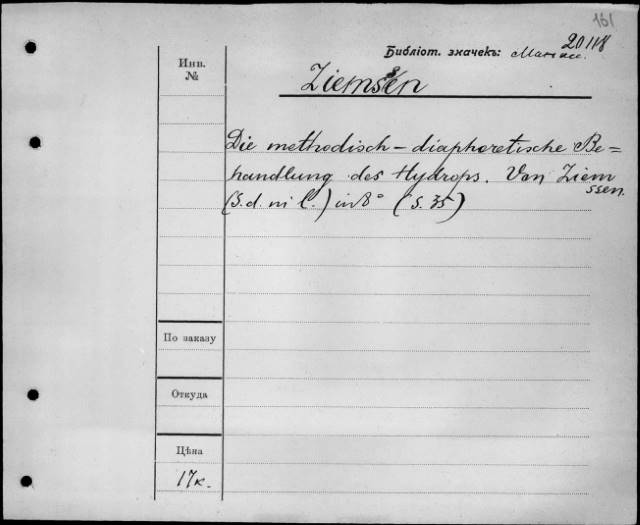 161
20118
Библіот. значекъ:
Инв.
№
Ziemssen
Die methodisch-diaphoretische Be=
handlung des Hydrops. Von Ziem
ssen.
(S. d. ni l.) in 8° (S. 35)
По заказу
Откуда
Цѣна
17к.